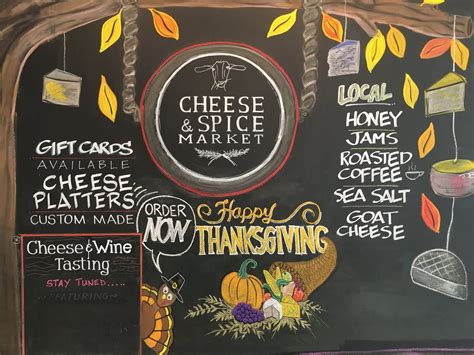 CHEESE
& SPICE
MARKET
GIFT CARDS
AVAILABLE
CHEESE
PLATTERS
CUSTOM MADE
ORDER
NOW
Happy
THANKSGIVING
LOCAL
HONEY
JAMS
ROASTED
COFFEE
SEA SALT
GOAT
CHEESE
Cheese & Wine
Tasting
STAY TUNED.....
~FEATURING~